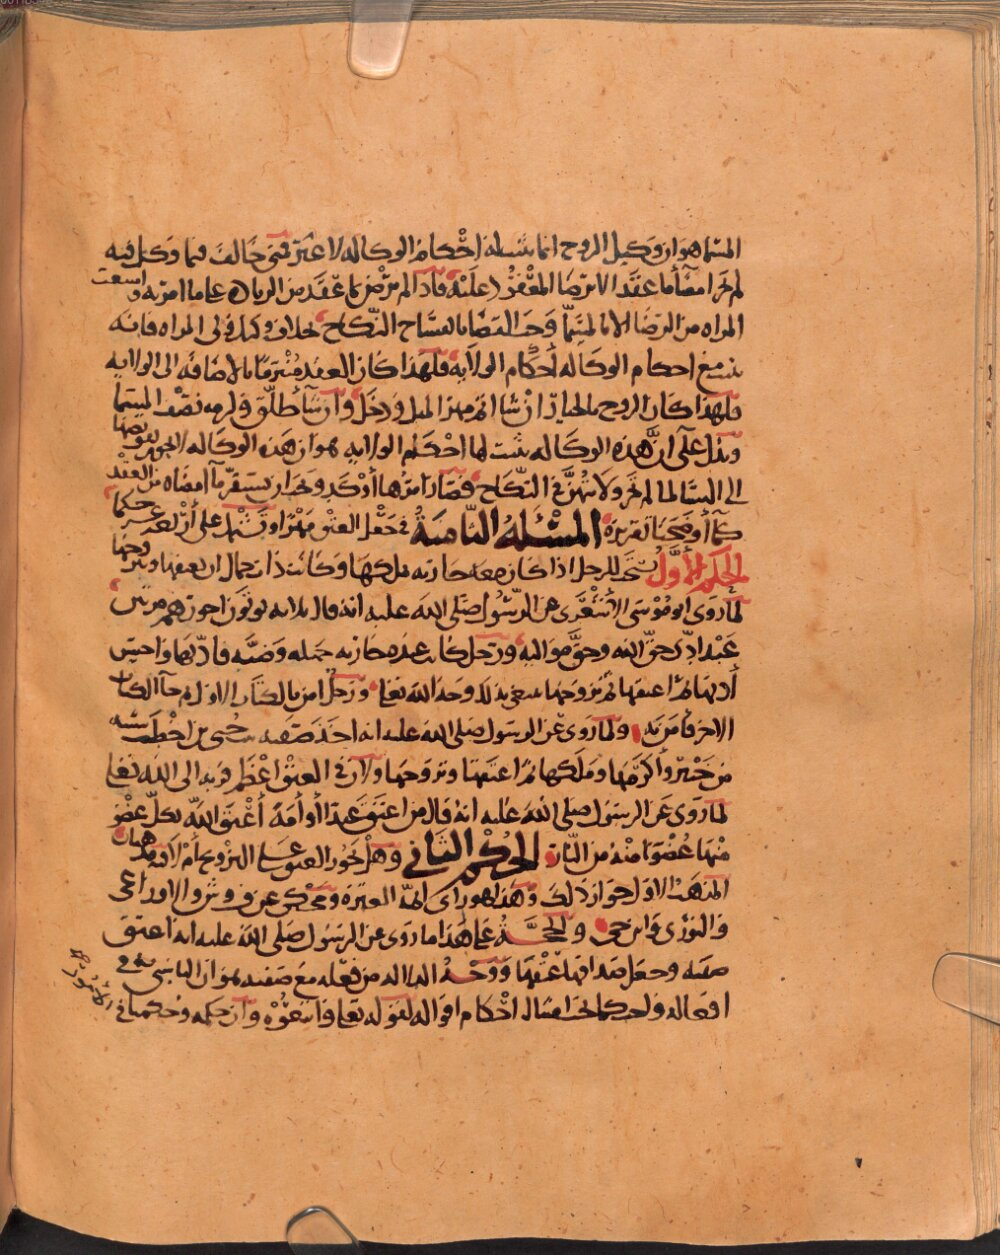 المسما هو ان وكيل الزوج انما تثبت له احكام الوكاله لا غير فمتى خالف فيما وكل فيه
لم يجز امضا ما عقد الا برضا المعقود عليه فاذا لم يرض بما عقد من الزياده على ما امر به واسعت
المراه من الرضا الا بالمسما وجب القضا بانفساخ النكاح بخلاف وكيل ولي المراه فانه
تتبع احكام الوكاله أحكام الولاية فلهذا كان العقد مبرما بالاضافة الى الولايه
فلهذا كان الزوج بالخيار ان شا اتم مهر المثل ودخل وان شا طلق ولزمه نصف المسما
ويدل على ان هذه الوكاله تثبت لها احكام الولايه هو ان هذه الوكاله
الى النسا لما لم يجز ولايتهن في النكاح فصار امرها أوكد وصار يستقر ما امضاه من العقد
كما أوضحنا تقريره المسئلة الثامنة في جعل العتق مهرا وتشتمل على أربعة عشر حكما
الحكم الأول يستحب للرجل اذا كان معه جاريه ملكها وكانت ذات جمال ان يعتقها ويتزوجها
لما روى ابو موسى الأشعري عن الرسول صلى الله عليه انه قال ثلاثه يوتون اجورهم مرتين
عبد ادى حق الله وحق مواليه ورجل كانت عنده جاريه جميله وضيه فادبها واحسن
أدبها ثم اعتقها ثم تزوجها يبتغي بذلك وجه الله تعالى ورجل امن بالكتاب الاول ثم جا الكتاب
الاخر فآمن به ولما روى عن الرسول صلى الله عليه انه اخذ صفيه بنت حُيي بن اخطب
من خيبر وأكرمها وملكها ثم اعتقها وتزوجها ولان في العتق اعظم قربه الى الله تعالى
لما روى عن الرسول صلى الله عليه انه قال من اعتق عبدا أو أمة أعتق الله بكل عضو
منها عضوا منه من النار الحكم الثاني وهل يجوز العتق على التزويج أم لا فيه مذهبان
المذهب الاول جواز ذلك وهذا هو راي ائمة العترة ومحكي عن والاوزاعي
والثوري وابن حي والحجة على هذا ما روى عن الرسول صلى الله عليه انه اعتق
صفيه وجعل صداقها عتقها ووجه الدلاله من فعله مع صفيه هو ان التاسي به في
افعاله واجب كما يجب امتثال احكام اقواله لقوله تعالى واتبعوه وان حكمه وحكمنا في